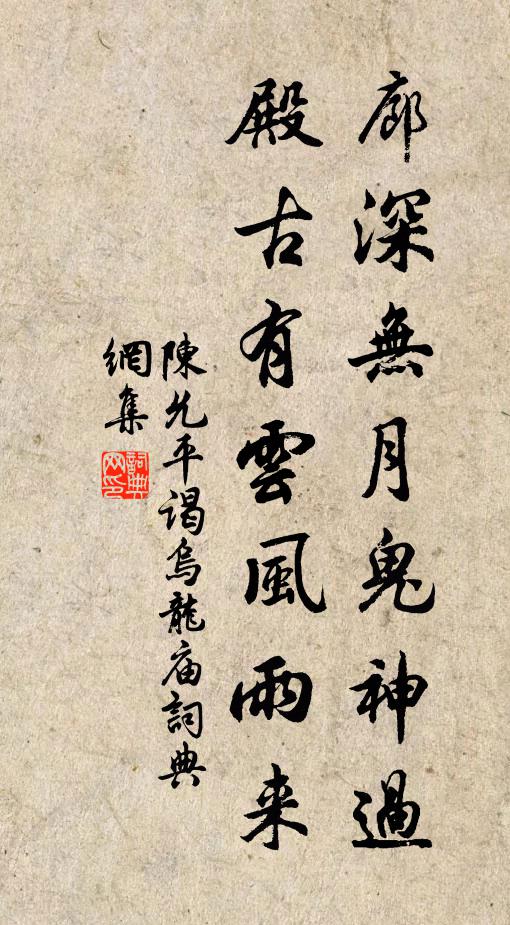 廊深無月鬼神過
殿古有雲風雨来
陳允平謁烏龍庙詞典
網集
詞典
网印